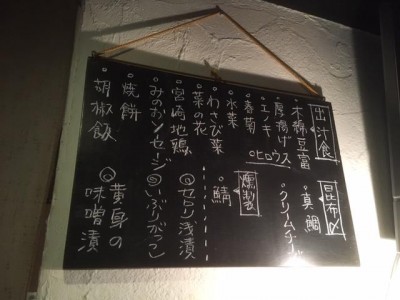 出汁食
・木綿豆富
・厚揚げ
・エノキ
・春菊
・水菜
・わさび菜
・菜の花
・宮崎地鶏
・みのおソーセージ
・焼餅
・胡椒飯
○ヒロウス
昆布〆
・真鯛
・クリームチーズ
燻製
・鯖
セロリ浅漬
いぶりがっこ
黄身の味噌漬